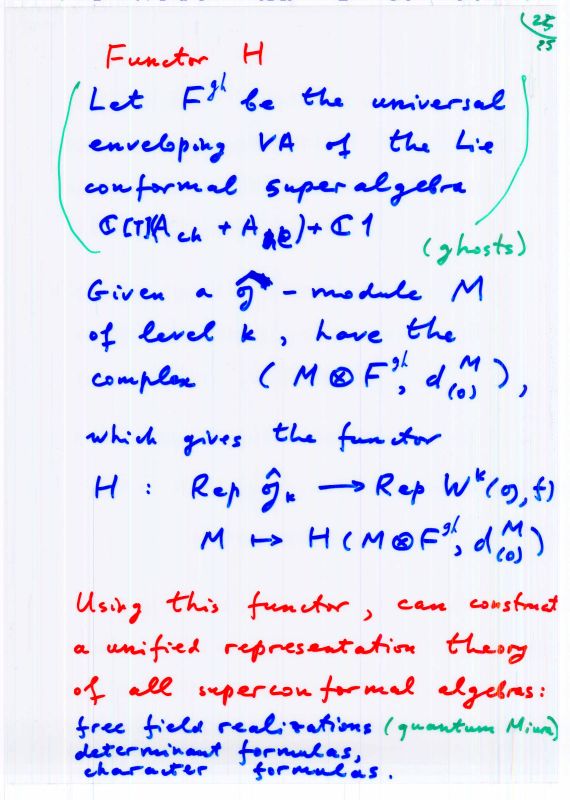 25
25
Functor H
Let F^{gh} be the universal
enveloping VA of the Lie
conformal superalgebra
ℂ[T](A_{ch} + A_{ne}) + ℂ1
(ghosts)
Given a ĝ - module M
of level k, have the
complex (M ⊗ F^{gh}, d^M_{(0)}),
which gives the functor
H : Rep ĝ_k ⟶ Rep W^k(g, f)
M ↦ H(M ⊗ F^{gh}, d^M_{(0)})
Using this functor, can construct
a unified representation theory
of all superconformal algebras:
free field realizations (quantum Miura)
determinant formulas,
character formulas.